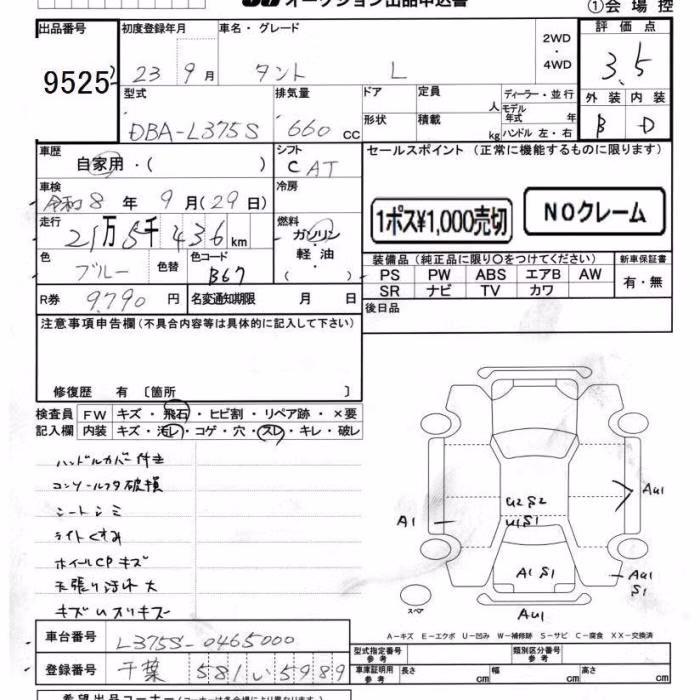 オークション出品申込書
①会場控
出品番号 初度登録年月 車名・グレード 2WD・4WD 評価点
9525 23年9月 タント L 3.5
型式 排気量 ドア 定員 人 ディーラー・並行 外装 内装
DBA-L375S 660cc 形状 積載 kg モデル年式 年 ハンドル 左・右 B D
車歴 シフト セールスポイント (正常に機能するものに限ります)
自家用・( ) C AT
車検 冷房
令和8年9月(29日) 1ポス¥1,000売切 NOクレーム
走行 燃料
21万5千436km ガソリン・軽油・( )
装備品 (純正品に限り○をつけてください) 新車保証書
色 色替 色コード PS PW ABS エアB AW 有・無
ブルー B67 SR ナビ TV カワ
R券 9,790円 名変通知期限 月 日 後日品
注意事項申告欄 (不具合内容等は具体的に記入して下さい)
修復歴 有 〔箇所 〕
検査員 FW キズ・飛石・ヒビ割・リペア跡・×要
記入欄 内装 キズ・汚レ・コゲ・穴・スレ・キレ・破レ
ハンドルカバー付き
コンソールフタ破損
シートシミ
ライトくすみ
ホイールCPキズ
天張り汚れ大
キズUスリキズ
U2 S2
U1 S1
A1
AU1
A1 S1
AU1
S1
AU1
スペア
A-キズ E-エクボ U-凹み W-補修跡 S-サビ C-腐食 XX-交換済
車台番号 L375S-0465000
登録番号 千葉 581 い 5989
型式指定番号 参考 類別区分番号 参考
車庫証明用 参考 長さ cm 幅 cm 高さ cm
希望出品コーナー